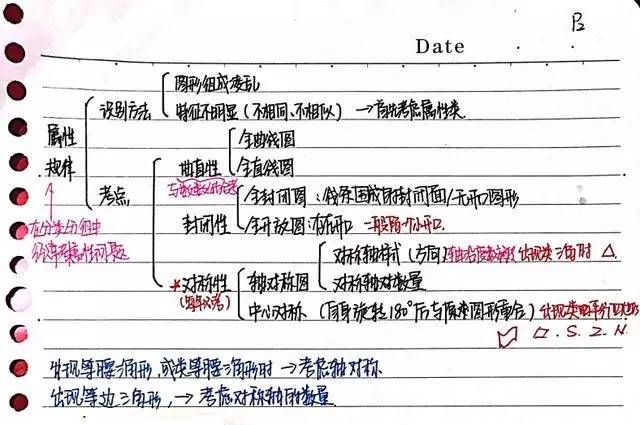 P2
Date
图形组成凌乱
识别方法
特征不明显(不相同、不相似)→首先考虑属性类
属性
规律
全曲线图
曲直性
全直线图
考点
全封闭图:线条围成的封闭面/无开口图形
封闭性
全开放图:有开口 一般留一个小开口.
在分类分组中
经常考属性问题
对称轴样式(方向) 出现类三角时 △
*对称性
轴对称图
(每年必考)
对称轴对数量
中心对称(自身旋转180°后与原来图形重合) 出现类平行四边形
▱.S.Z.N.
出现等腰三角形,或类等腰三角形时→考虑轴对称
出现等边三角形,→考虑对称轴的数量